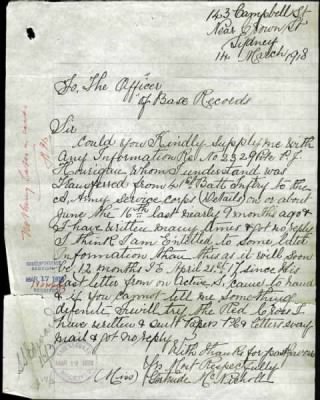 143 Campbell St
Near Crown St
Sydney
14 March 1918
To, The Officer
of Base Records
Sir
Could you Kindly Supply me with
any Information Re. No 2329 Pte P. J.
Hourigan whom I understand was
transferred from Batt Inftry to the
A, Army Service Corps (Details) on or about
June the 16th last nearly 9 months ago &
I have written many times & got no reply
I think I am Entitled to Some
Information than this as it will soon
be 12 months I. April 21st 17 since his
last letter from on Active S. came to hand
& if you cannot tell me Something
definite I will try the Red Cross I
have written & Sent Papers & letters every
mail & got no reply
With Thanks for past favours
Yrs Most Respectfully
(Miss) Gertrude McNicholl
MAR 17 1918